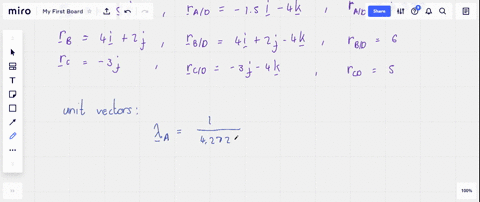 miro My First Board Share
r_A/D = -1.5i - 4k , r_A/D
r_B = 4i + 2j , r_B/D = 4i + 2j - 4k , r_B/D = 6
r_C = -3j , r_C/D = -3j - 4k , r_CD = 5
unit vectors:
λ_A = 1
4.272
100%